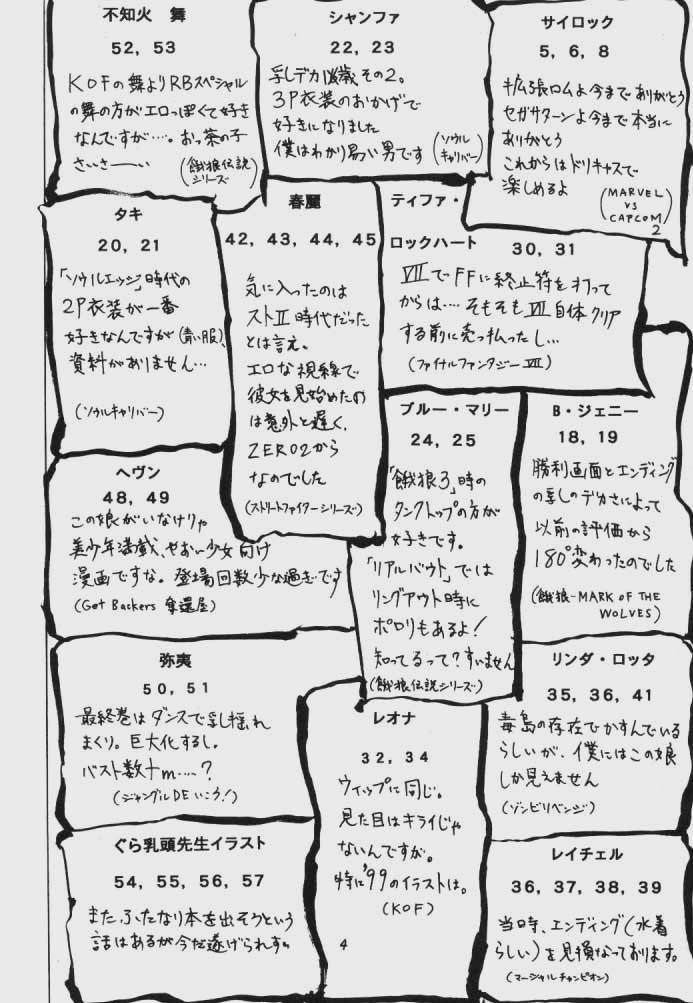 不知火 舞
52, 53
KOFの舞よりRBスペシャル
の舞の方がエロっぽくて好き
なんですが‥‥。おっ茶の子
さいさーーい
(餓狼伝説
シリーズ)
シャンファ
22, 23
乳デカ 歳 その2。
3P衣装のおかげで
好きになりました
僕はわかり易い男です
(ソウル
キャリバー)
サイロック
5, 6, 8
拡張ロムよ今までありがとう
セガサターンよ今まで本当に
ありがとう
これからはドリキャスで
楽しめるよ
(MARVEL
VS
CAPCOM
2
タキ
20, 21
「ソウルエッジ」時代の
2P衣装が一番
好きなんですが(青い服)、
資料がありません…
(ソウルキャリバー)
春麗
42, 43, 44, 45
気に入ったのは
ストⅡ時代だった
とは言え。
エロな視線で
彼女を見始めたの
は意外と遅く、
ZERO2から
なのでした
(ストリートファイターシリーズ)
ティファ・
ロックハート
30, 31
ⅦでFFに終止符を打って
からは‥‥そもそもⅦ自体クリア
する前に売っ払ったし…
(ファイナルファンタジーⅦ)
ブルー・マリー
24, 25
「餓狼3」時の
タンクトップの方が
好きです。
「リアルバウト」では
リングアウト時に
ポロリもあるよ!
知ってるって?すいません
(餓狼伝説シリーズ)
B・ジェニー
18, 19
勝利画面とエンディング
の乳のデカさによって
以前の評価から
180°変わったのでした
(餓狼-MARK OF THE
WOLVES)
ヘヴン
48, 49
この娘がいなけりゃ
美少年満載、せおい少女向け
漫画ですな。登場回数少な過ぎです
(Get Backers 奪還屋)
弥夷
50, 51
最終巻はダンスで乳揺れ
まくり。巨大化するし。
バスト数十m‥‥?
(ジャングルDEいこう!)
レオナ
32, 34
ウィップに同じ。
見た目はキライじゃ
ないんですが。
特に'99のイラストは。
(KOF)
リンダ・ロッタ
35, 36, 41
毒島の存在でかすんでいる
らしいが、僕にはこの娘
しか見えません
(ゾンビリベンジ)
ぐら乳頭先生イラスト
54, 55, 56, 57
また、ふたなり本を出そうという
話はあるが今だ遂げられず。
レイチェル
36, 37, 38, 39
当時、エンディング(水着
らしい)を見損なっております。
(マーシャルチャンピオン)
4